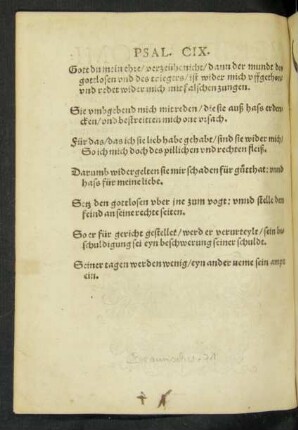 PSAL. CIX.
Gott du mein ehre/ verzeühe nicht/ dann der mundt des
gottlosen vnd des triegers/ ist wider mich vffgethon/
vnd redet wider mich mit falschen zungen.
Sie vmbgebend mich mit reden/ die sie auß hass erden-
cken/ vnd bestreitten mich one vrsach.
Für das/ das ich sie lieb habe gehabt/ sind sie wider mich/
So ich mich doch des pillichen vnd rechten fleiß.
Darumb widergelten sie mir schaden für gůtthat: vnnd
hass für meine liebe.
Setz den gottlosen vber jne zum vogt: vnnd stelle den
feind an seine rechte seiten.
So er für gericht gestellet/ werd er verurteylt/ sein be
schuldigung sei eyn beschwerung seiner schuldt.
Seiner tagen werden wenig/ eyn ander neme sein ampt
ein.